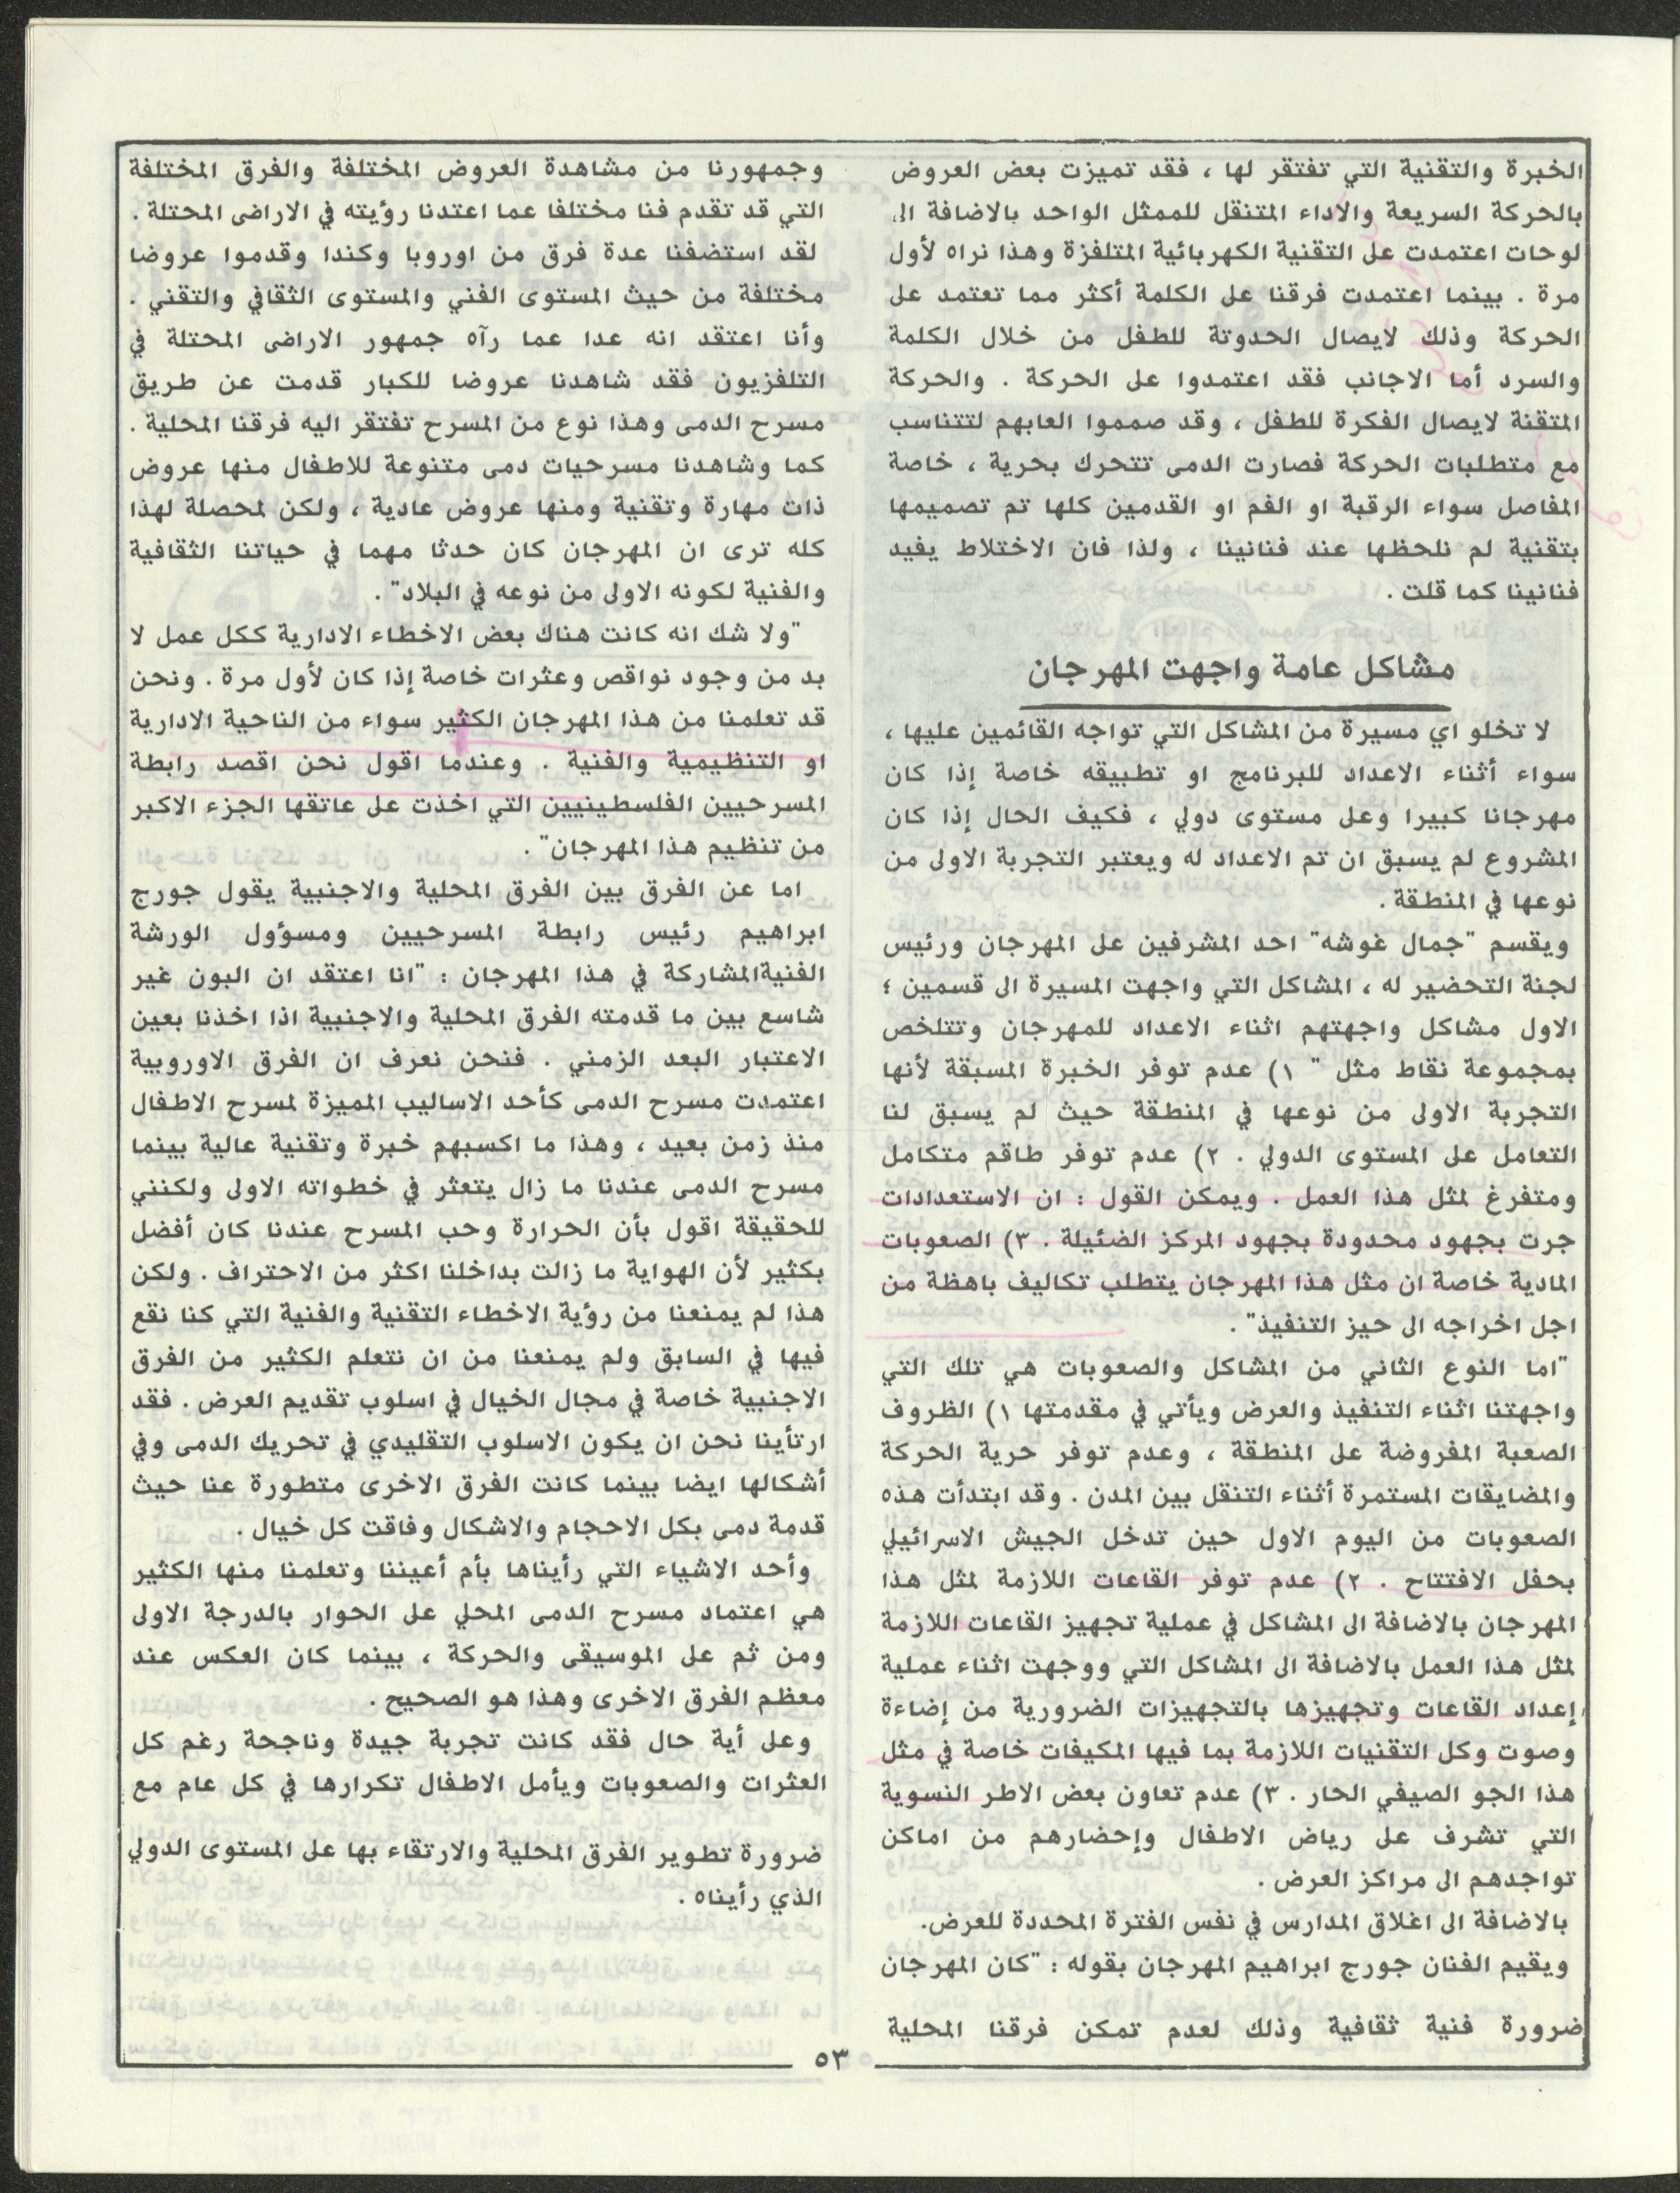 الخبرة والتقنية التي تفتقر لها ، فقد تميزت بعض العروض
بالحركة السريعة والاداء المتنقل للممثل الواحد بالاضافة الى
لوحات اعتمدت على التقنية الكهربائية المتلفزة وهذا نراه لأول
مرة . بينما اعتمدت فرقنا على الكلمة أكثر مما تعتمد على
الحركة وذلك لايصال الحدوتة للطفل من خلال الكلمة
والسرد أما الاجانب فقد اعتمدوا على الحركة . والحركة
المتقنة لايصال الفكرة للطفل ، وقد صمموا العابهم لتتناسب
مع متطلبات الحركة فصارت الدمى تتحرك بحرية ، خاصة
المفاصل سواء الرقبة او الفم او القدمين كلها تم تصميمها
بتقنية لم نلحظها عند فنانينا ، ولذا فان الاختلاط يفيد
فنانينا كما قلت .
مشاكل عامة واجهت المهرجان
لا تخلو اي مسيرة من المشاكل التي تواجه القائمين عليها ،
سواء أثناء الاعداد للبرنامج او تطبيقه خاصة إذا كان
مهرجانا كبيرا وعلى مستوى دولي ، فكيف الحال إذا كان
المشروع لم يسبق ان تم الاعداد له ويعتبر التجربة الاولى من
نوعها في المنطقة .
ويقسم "جمال غوشه" احد المشرفين على المهرجان ورئيس
لجنة التحضير له ، المشاكل التي واجهت المسيرة الى قسمين ؛
الاول مشاكل واجهتهم اثناء الاعداد للمهرجان وتتلخص
بمجموعة نقاط مثل " ١) عدم توفر الخبرة المسبقة لأنها
التجربة الاولى من نوعها في المنطقة حيث لم يسبق لنا
التعامل على المستوى الدولي . ٢) عدم توفر طاقم متكامل
ومتفرغ لمثل هذا العمل . ويمكن القول : ان الاستعدادات
جرت بجهود محدودة بجهود المركز الضئيلة . ٣) الصعوبات
المادية خاصة ان مثل هذا المهرجان يتطلب تكاليف باهظة من
اجل اخراجه الى حيز التنفيذ" .
"اما النوع الثاني من المشاكل والصعوبات هي تلك التي
واجهتنا اثناء التنفيذ والعرض ويأتي في مقدمتها ١) الظروف
الصعبة المفروضة على المنطقة ، وعدم توفر حرية الحركة
والمضايقات المستمرة أثناء التنقل بين المدن . وقد ابتدأت هذه
الصعوبات من اليوم الاول حين تدخل الجيش الاسرائيلي
بحفل الافتتاح . ٢) عدم توفر القاعات اللازمة لمثل هذا
المهرجان بالاضافة الى المشاكل في عملية تجهيز القاعات اللازمة
لمثل هذا العمل بالاضافة الى المشاكل التي ووجهت اثناء عملية
إعداد القاعات وتجهيزها بالتجهيزات الضرورية من إضاءة
وصوت وكل التقنيات اللازمة بما فيها المكيفات خاصة في مثل
هذا الجو الصيفي الحار . ٣) عدم تعاون بعض الاطر النسوية
التي تشرف على رياض الاطفال وإحضارهم من اماكن
تواجدهم الى مراكز العرض .
بالاضافة الى اغلاق المدارس في نفس الفترة المحددة للعرض.
ويقيم الفنان جورج ابراهيم المهرجان بقوله : "كان المهرجان
ضرورة فنية ثقافية وذلك لعدم تمكن فرقنا المحلية
وجمهورنا من مشاهدة العروض المختلفة والفرق المختلفة
التي قد تقدم فنا مختلفا عما اعتدنا رؤيته في الاراضى المحتلة .
لقد استضفنا عدة فرق من اوروبا وكندا وقدموا عروضا
مختلفة من حيث المستوى الفني والمستوى الثقافي والتقني .
وأنا اعتقد انه عدا عما رآه جمهور الاراضى المحتلة في
التلفزيون فقد شاهدنا عروضا للكبار قدمت عن طريق
مسرح الدمى وهذا نوع من المسرح تفتقر اليه فرقنا المحلية .
كما وشاهدنا مسرحيات دمى متنوعة للاطفال منها عروض
ذات مهارة وتقنية ومنها عروض عادية ، ولكن لمحصلة لهذا
كله ترى ان المهرجان كان حدثا مهما في حياتنا الثقافية
والفنية لكونه الاولى من نوعه في البلاد" .
"ولا شك انه كانت هناك بعض الاخطاء الادارية ككل عمل لا
بد من وجود نواقص وعثرات خاصة إذا كان لأول مرة . ونحن
قد تعلمنا من هذا المهرجان الكثير سواء من الناحية الادارية
او التنظيمية والفنية . وعندما اقول نحن اقصد رابطة
المسرحيين الفلسطينيين التي اخذت على عاتقها الجزء الاكبر
من تنظيم هذا المهرجان" .
اما عن الفرق بين الفرق المحلية والاجنبية يقول جورج
ابراهيم رئيس رابطة المسرحيين ومسؤول الورشة
الفنيةالمشاركة في هذا المهرجان : "انا اعتقد ان البون غير
شاسع بين ما قدمته الفرق المحلية والاجنبية اذا اخذنا بعين
الاعتبار البعد الزمني . فنحن نعرف ان الفرق الاوروبية
اعتمدت مسرح الدمى كأحد الاساليب المميزة لمسرح الاطفال
منذ زمن بعيد ، وهذا ما اكسبهم خبرة وتقنية عالية بينما
مسرح الدمى عندنا ما زال يتعثر في خطواته الاولى ولكنني
للحقيقة اقول بأن الحرارة وحب المسرح عندنا كان أفضل
بكثير لأن الهواية ما زالت بداخلنا اكثر من الاحتراف . ولكن
هذا لم يمنعنا من رؤية الاخطاء التقنية والفنية التي كنا نقع
فيها في السابق ولم يمنعنا من ان نتعلم الكثير من الفرق
الاجنبية خاصة في مجال الخيال في اسلوب تقديم العرض . فقد
ارتأينا نحن ان يكون الاسلوب التقليدي في تحريك الدمى وفي
أشكالها ايضا بينما كانت الفرق الاخرى متطورة عنا حيث
قدمة دمى بكل الاحجام والاشكال وفاقت كل خيال .
وأحد الاشياء التي رأيناها بأم أعيننا وتعلمنا منها الكثير
هي اعتماد مسرح الدمى المحلي على الحوار بالدرجة الاولى
ومن ثم على الموسيقى والحركة ، بينما كان العكس عند
معظم الفرق الاخرى وهذا هو الصحيح .
وعلى أية حال فقد كانت تجربة جيدة وناجحة رغم كل
العثرات والصعوبات ويأمل الاطفال تكرارها في كل عام مع
ضرورة تطوير الفرق المحلية والارتقاء بها على المستوى الدولي
الذي رأيناه .
٥٣